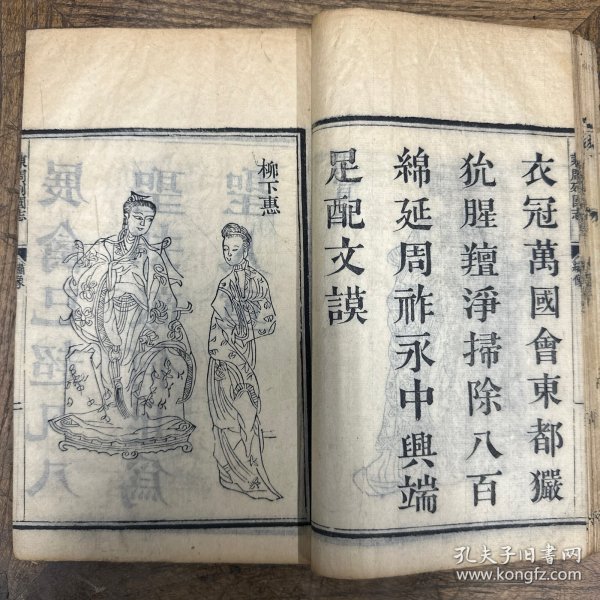 衣冠萬國會東都玁
狁腥羶淨掃除八百
綿延周祚永中興端
足配文謨
柳下惠
東周列國志
繡像
孔夫子旧书网
www.kongfz.com